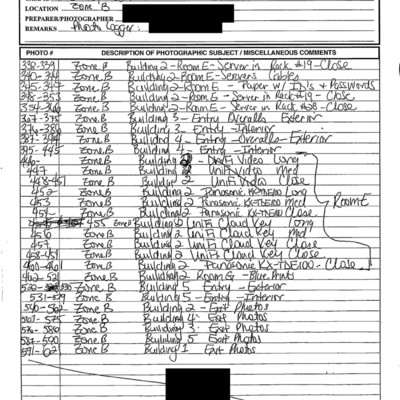 LOCATION Zone B
PREPARER/PHOTOGRAPHER
REMARKS Photo Logger:
PHOTO # DESCRIPTION OF PHOTOGRAPHIC SUBJECT / MISCELLANEOUS COMMENTS
338-339 Zone B Building 2-Room E-Server in Rack #19-Close
340-344 Zone B Building 2-Room E-Servers Cables
345-347 Zone B Building 2-Room E - Paper w/ ID's + Passwords
348-353 Zone B Building 2-Room E - Server in Rack #19 - Close
354-366 Zone B Building 2-Room E - Server in Rack #28-Close
367-375 Zone B Building 3 - Entry Overalls Exterior
376-386 Zone B Building 3 - Entry - Interior
387-394 Zone B Building 4 - Entry - Overalls-Exterior
395-445 Zone B Building 4 - Entry - Interior
446- Zone B Building 2 - UniFi Video Long
447 Zone B Building 2 UniFi Video Med
448-451 Zone B Building 2 UniFi Video Close
452 Zone B Building 2 Panasonic KX-TNE100 Long
453 Zone B Building 2 Panasonic KX-TNE100 Med
454 Zone B Building 2 Panasonic KX-TNE100 Close
Room E
455 Zone B Building 2 UniFi Cloud Key Long
456 Zone B Building 2 UniFi Cloud Key Med
457 Zone B Building 2 UniFi Cloud Key Close
458-459 Zone B Building 2 UniFi Cloud Key Close
460-461 Zone B Building 2 Panasonic KX-TNE100 - Close
462-521 Zone B Building 2 Room G - Blue Prints
Zone B Building 5 - Entry - Exterior
531-549 Zone B Building 5 - Entry - Interior
550-562 Zone B Building 2 - Exit Photos
563-575 Zone B Building 4 - Exit Photos
576-580 Zone B Building 3 - Exit Photos
581-590 Zone B Building 5 Exit Photos
591-602 Zone B Building 1 Exit Photos